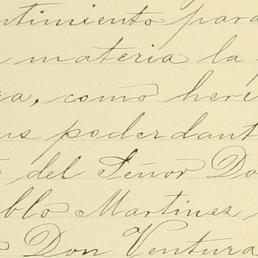 ntimiento para
materia la
a, como here
us poderdant
del Señor Do
blo Martinez
Don Ventura